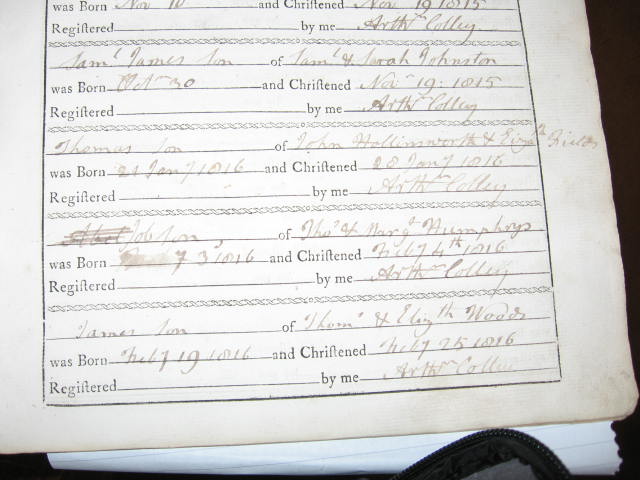 was Born Nov 10 and Chriſtened Nov 19 1815
Regiſtered by me Arthr Colley
Saml James Son of Saml & Sarah Johnston
was Born Octr 30 and Chriſtened Novr 19. 1815
Regiſtered by me Arthr Colley
Thomas Son of John Hollinsworth & Elizth Fields
was Born 21 Jany 1816 and Chriſtened 28 Jany 1816
Regiſtered by me Arthr Colley
Job Son of Thos & Margt Humphrys
was Born 3 1816 and Chriſtened Feby 4th 1816
Regiſtered by me Arthr Colley
James Son of Thoms & Elizth Woods
was Born Feby 19 1816 and Chriſtened Feby 25 1816
Regiſtered by me Arthr Colley